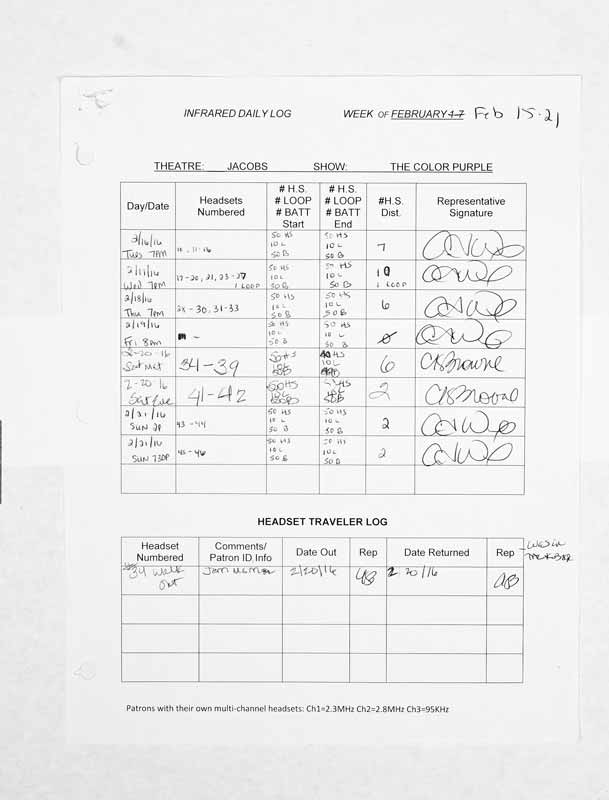 INFRARED DAILY LOG WEEK OF FEBRUARY 1-7 Feb 15-21
THEATRE: JACOBS SHOW: THE COLOR PURPLE
Day/Date Headsets Numbered # H.S. # LOOP # BATT Start # H.S. # LOOP # BATT End #H.S. Dist. Representative Signature
2/16/16 Tues 7PM 50 HS 10 L 50 B 50 HS 10 L 50 B 7
Wed 7PM 17-20, 21, 23-27 1 LOOP 50 HS 10 L 50 B 50 HS 10 L 50 B 10 1 LOOP
2/18/16 Thu 7PM 28-30, 31-33 50 HS 10 L 50 B 50 HS 10 L 50 B 6
2/19/16 Fri 8pm - 50 HS 10 L 50 B 50 HS 10 L 50 B 0
2-20-16 Sat Mat 34-39 50 HS 50B HS 6 CBrowne
2-20 16 Sat Eve 41-42 50 HS HS 2
2/21/16 SUN 2P 43-44 50 HS 10 L 50 B 50 HS 10 L 50 B 2
2/21/16 SUN 730P 45-46 50 HS 10 L 50 B 50 HS 10 L 50 B 2
HEADSET TRAVELER LOG
Headset Numbered Comments/ Patron ID Info Date Out Rep Date Returned Rep
39 Walk Out 2/20/16 2 20/16
Patrons with their own multi-channel headsets: Ch1=2.3MHz Ch2=2.8MHz Ch3=95KHz